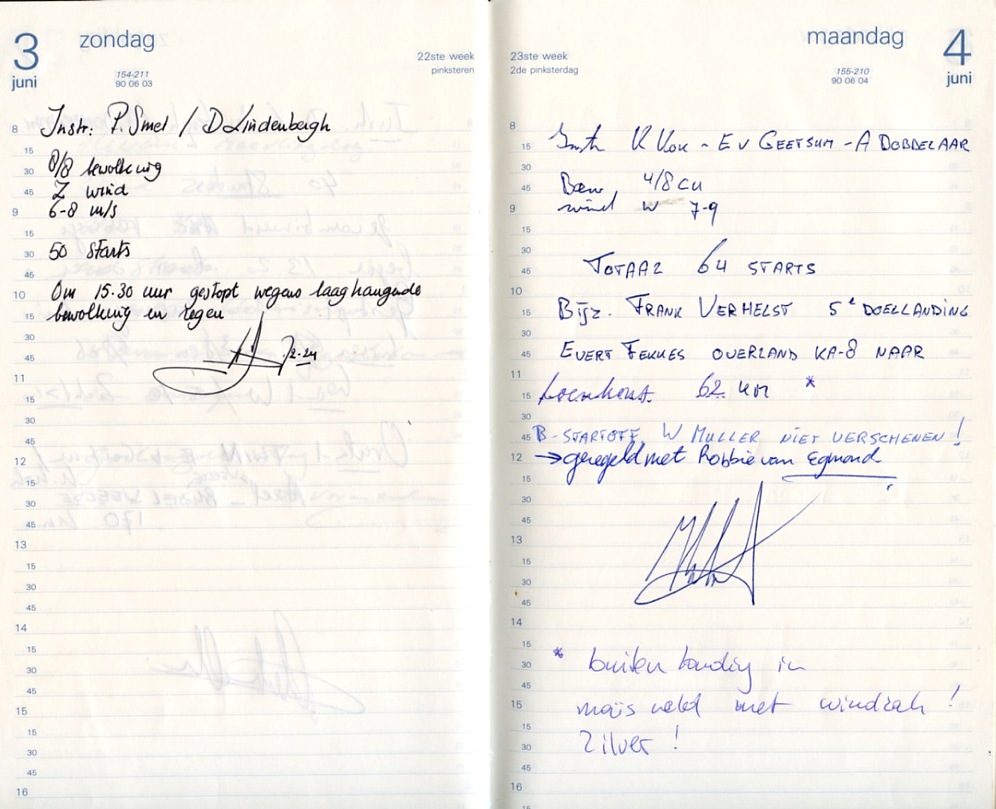 3 zondag
juni
154-211
90 06 03
22ste week
pinksteren
8
Instr: P. Smel / D Lindenbergh
15
30
8/8 bewolking
45
Z wind
9
6-8 m/s
15
30
50 starts
45
10
Om 15.30 uur gestopt wegens laaghangende
15
bewolking en regen
30
45
11
15
30
45
12
15
30
45
13
15
30
45
14
15
30
45
15
15
30
45
16
23ste week
2de pinksterdag
155-210
90 06 04
maandag 4
juni
8
15
K Vou - E v GEETSUM - A DOBBELAAR
30
45
4/8 cu
9
wind W 7-9
15
30
TOTAAL 64 STARTS
45
10
15
Bijz. FRANK VERHELST 5e DOELLANDING
30
45
EVERT FEKKES OVERLAND KA-8 NAAR
11
15
62 km *
30
45
B-STARTOFF W MULLER NIET VERSCHENEN!
12
→ geregeld met Robbie van Egmond
15
30
45
13
15
30
45
14
15
30
* buiten landing in
45
15
maïs veld met windzak!
15
30
Zilver!
45
16